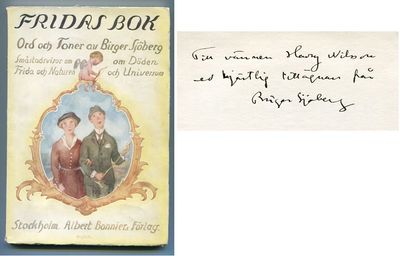 FRIDAS BOK
Ord och Toner av Birger Sjöberg
Småstadsvisor om om Döden
Frida och Naturen och Universum
Stockholm. Albert Bonniers Förlag.
Till vännen Harry Nilsson
med hjärtlig tillägnan från
Birger Sjöberg